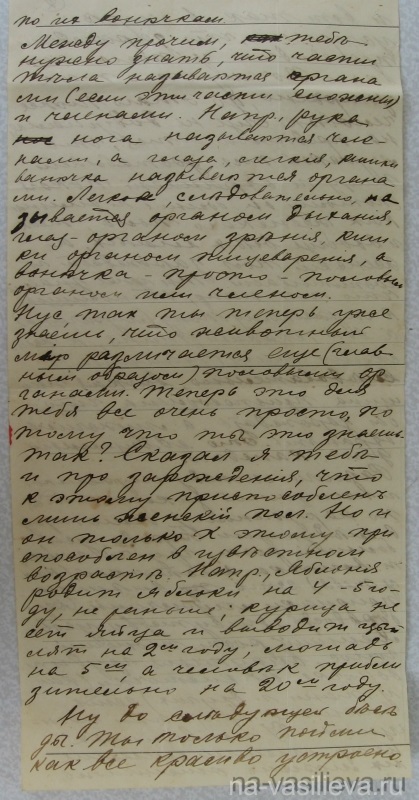 по их вонючкам.
Между прочим, тебѣ
нужно знать, что части
тѣла называются органа
ми (если эти части сложны)
и членами. Напр. рука
нога называются чле-
нами, а глаза, легкiя, кишки
вонючка называются органа
ми. Легкое, слѣдовательно, на
зывается органом дыханiя,
глаз - органом зрѣнiя, киш
ки органом пищеваренiя, а
вонючка - просто - половым
органом или членом.
Нус так ты теперь уже
знаешь, что животный
мiр различается еще (глав
ным образом) половыми ор
ганами. Теперь это для
тебя все очень просто, по
тому что ты это знаешь.
Так? Сказал я тебѣ
и про зарожденiя, что
к этому приспособлен
лишь женскiй пол. Но и
он только к этому при
способлен в извѣстном
возрастѣ. Напр., Яблоня
родит яблоки на 4-5 го-
ду, не раньше; курица не
сет яйца и выводит цып
лят на 2ом году, лошадь
на 5ом, а человѣк прибли
зительно на 20ом году.
Ну до слѣдующей бесѣ
ды. Ты только пойми
как все красиво устроено
na-vasilieva.ru